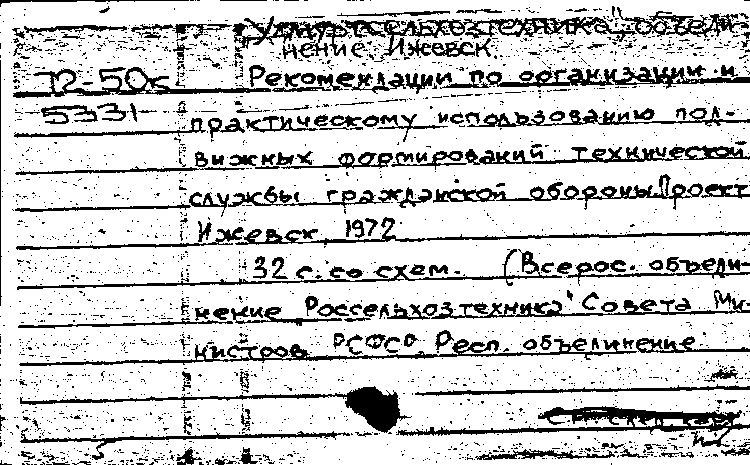 "Удмуртсельхозтехника", объеди-
нение. Ижевск.
72-50к
5331
Рекомендации по организации и
практическому использованию под-
вижных формирований технической
службы гражданской обороны. Проект
Ижевск, 1972
32 с. со схем. (Всерос. объеди-
нение "Россельхозтехника" Совета Ми-
нистров РСФСР. Респ. объелинение
См. след. карт
5